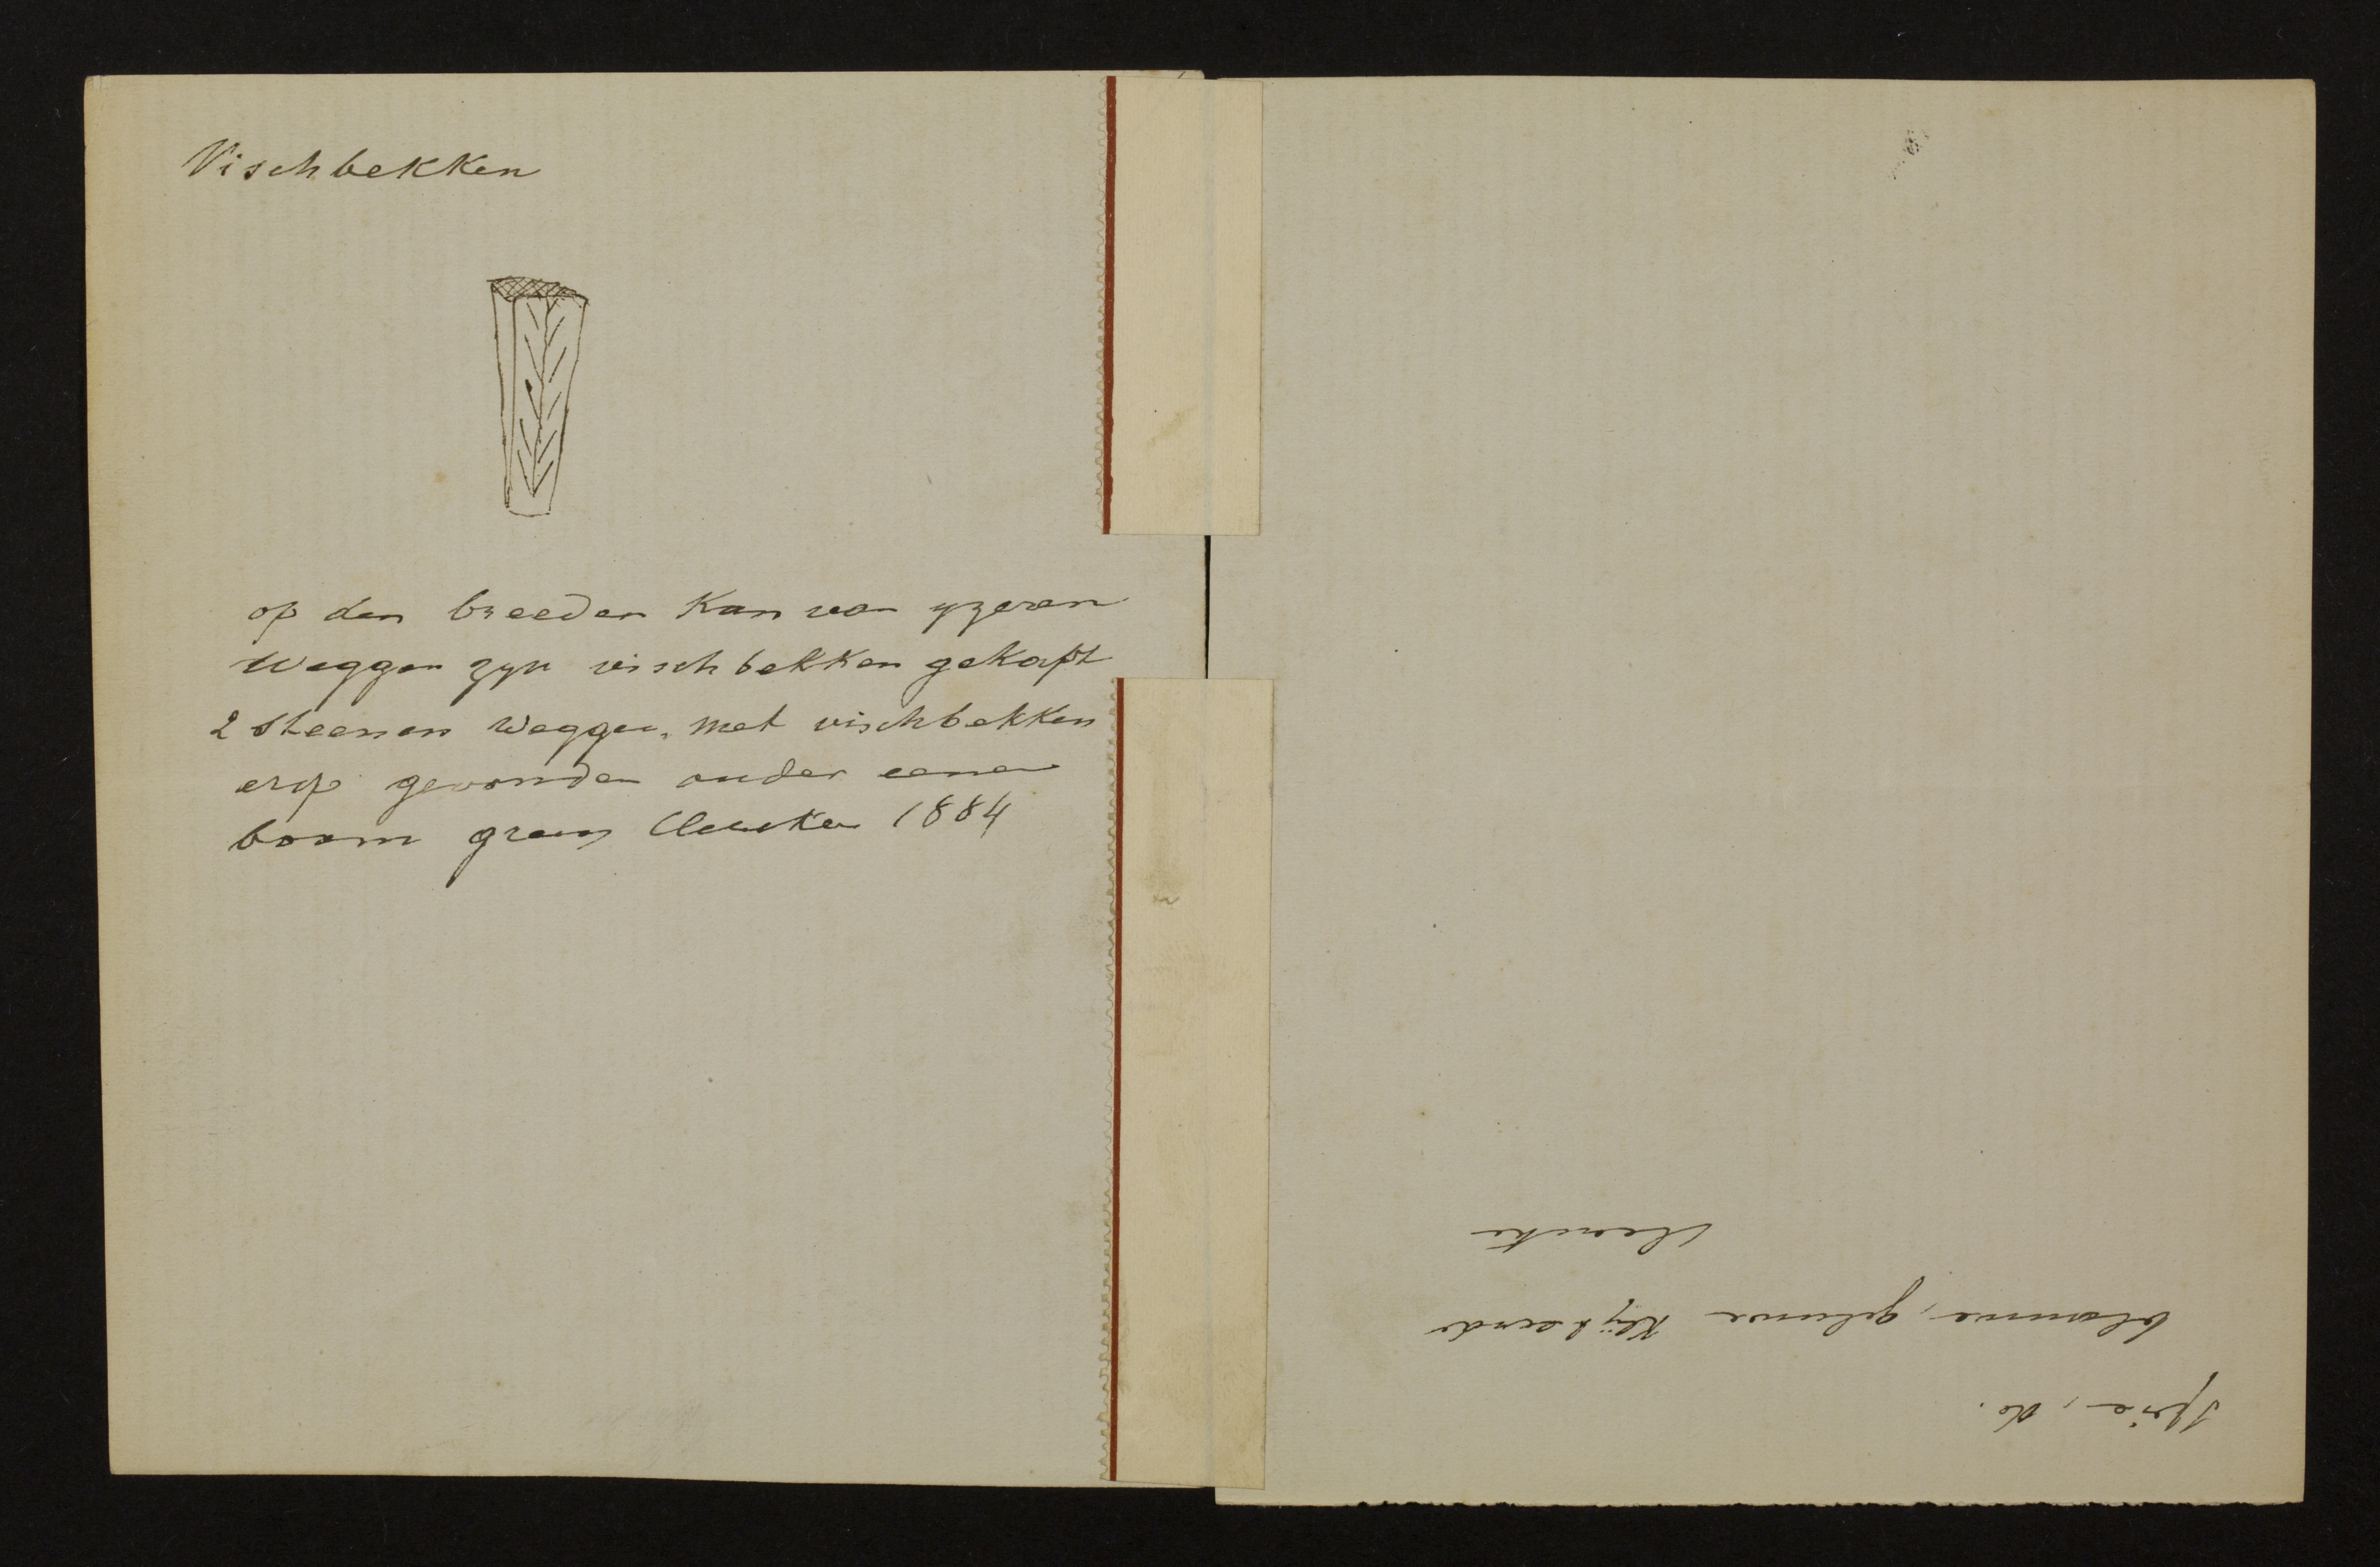 Vischbekken
op den breeden Kan van yzeren
Weggen zyn vischbekken gekapt
2 Steenen Weggen, met vischbekken
erop gevonden onder eenen
boom 1884
Sprie, de.
blomme, geluwe